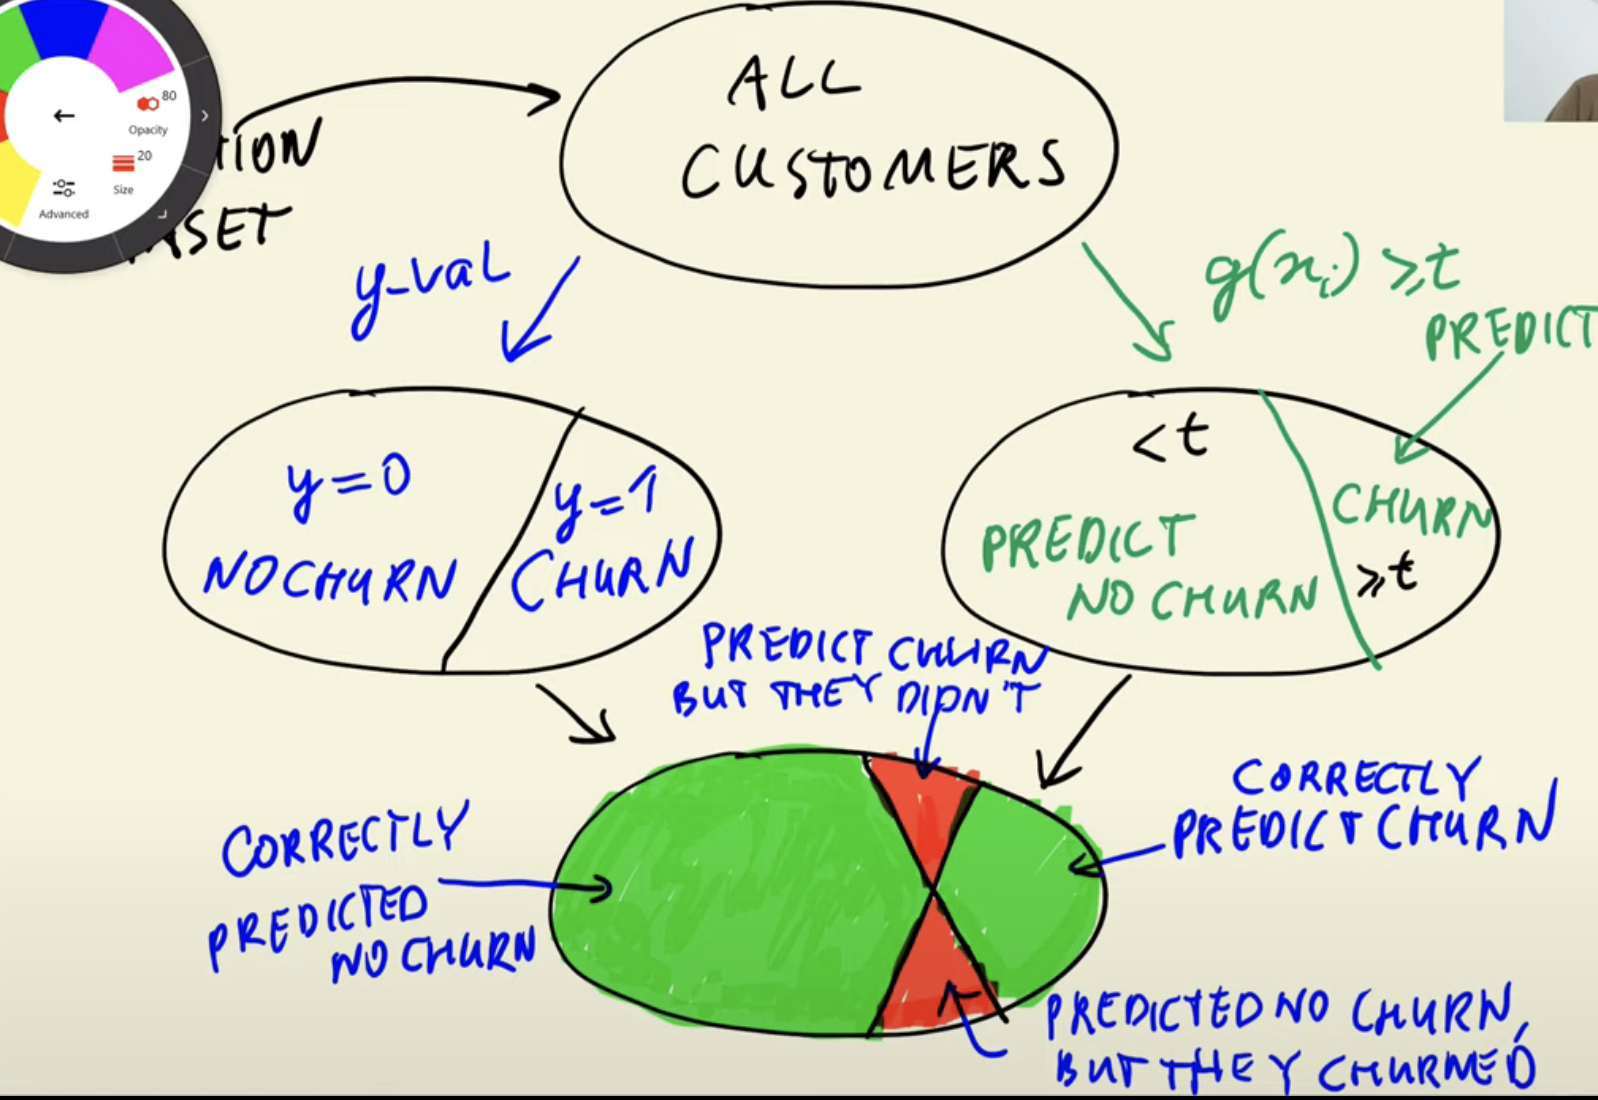 80
Opacity
20
Size
Advanced
ALL
CUSTOMERS
y-val
g(xᵢ) ≥t
PREDICT
y=0
NO CHURN
y=1
CHURN
<t
PREDICT
NO CHURN
CHURN
≥t
PREDICT CHURN
BUT THEY DIDN'T
CORRECTLY
PREDICTED
NO CHURN
CORRECTLY
PREDICT CHURN
PREDICTED NO CHURN,
BUT THEY CHURNED